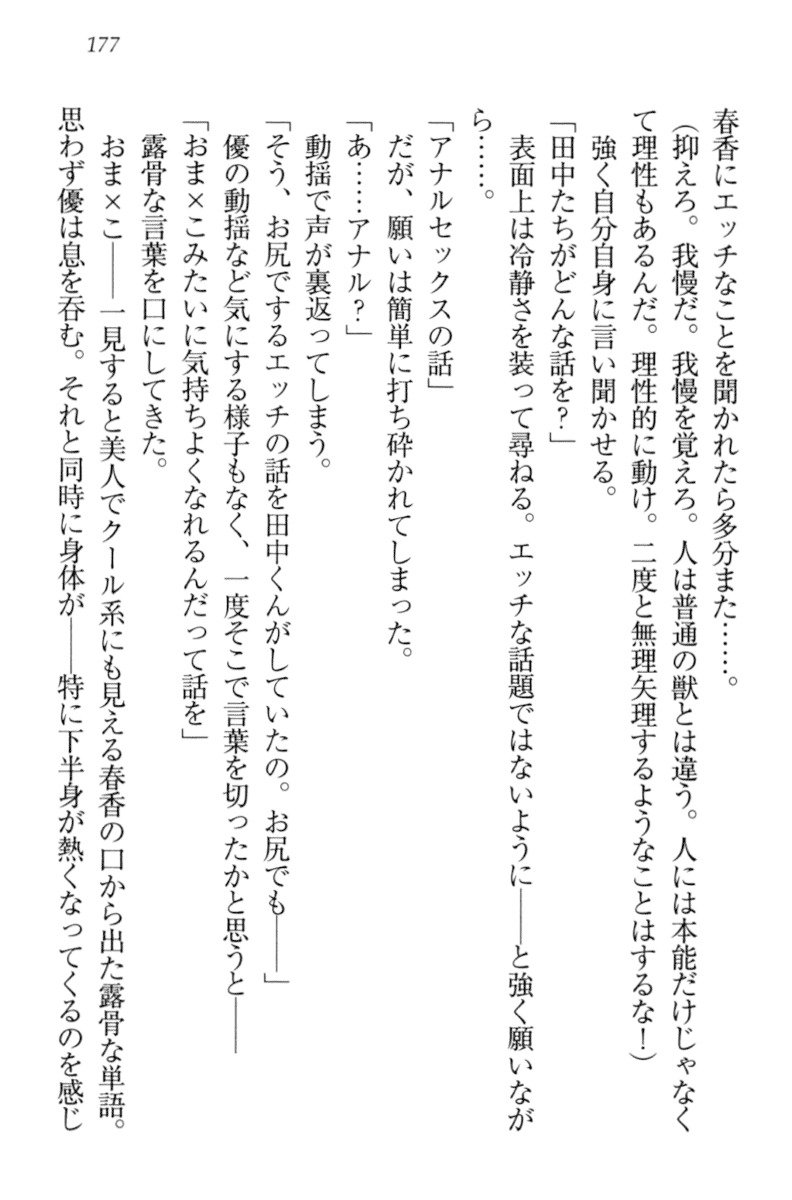 177
春香にエッチなことを聞かれたら多分また……。
（抑えろ。我慢だ。我慢を覚えろ。人は普通の獣とは違う。人には本能だけじゃなく
て理性もあるんだ。理性的に動け。二度と無理矢理するようなことはするな！）
強く自分自身に言い聞かせる。
「田中たちがどんな話を？」
表面上は冷静さを装って尋ねる。エッチな話題ではないように――と強く願いなが
ら……。
「アナルセックスの話」
だが、願いは簡単に打ち砕かれてしまった。
「あ……アナル？」
動揺で声が裏返ってしまう。
「そう、お尻でするエッチの話を田中くんがしていたの。お尻でも――」
優の動揺など気にする様子もなく、一度そこで言葉を切ったかと思うと――
「おま×こみたいに気持ちよくなれるんだって話を」
露骨な言葉を口にしてきた。
おま×こ――一見すると美人でクール系にも見える春香の口から出た露骨な単語。
思わず優は息を呑む。それと同時に身体が――特に下半身が熱くなってくるのを感じ